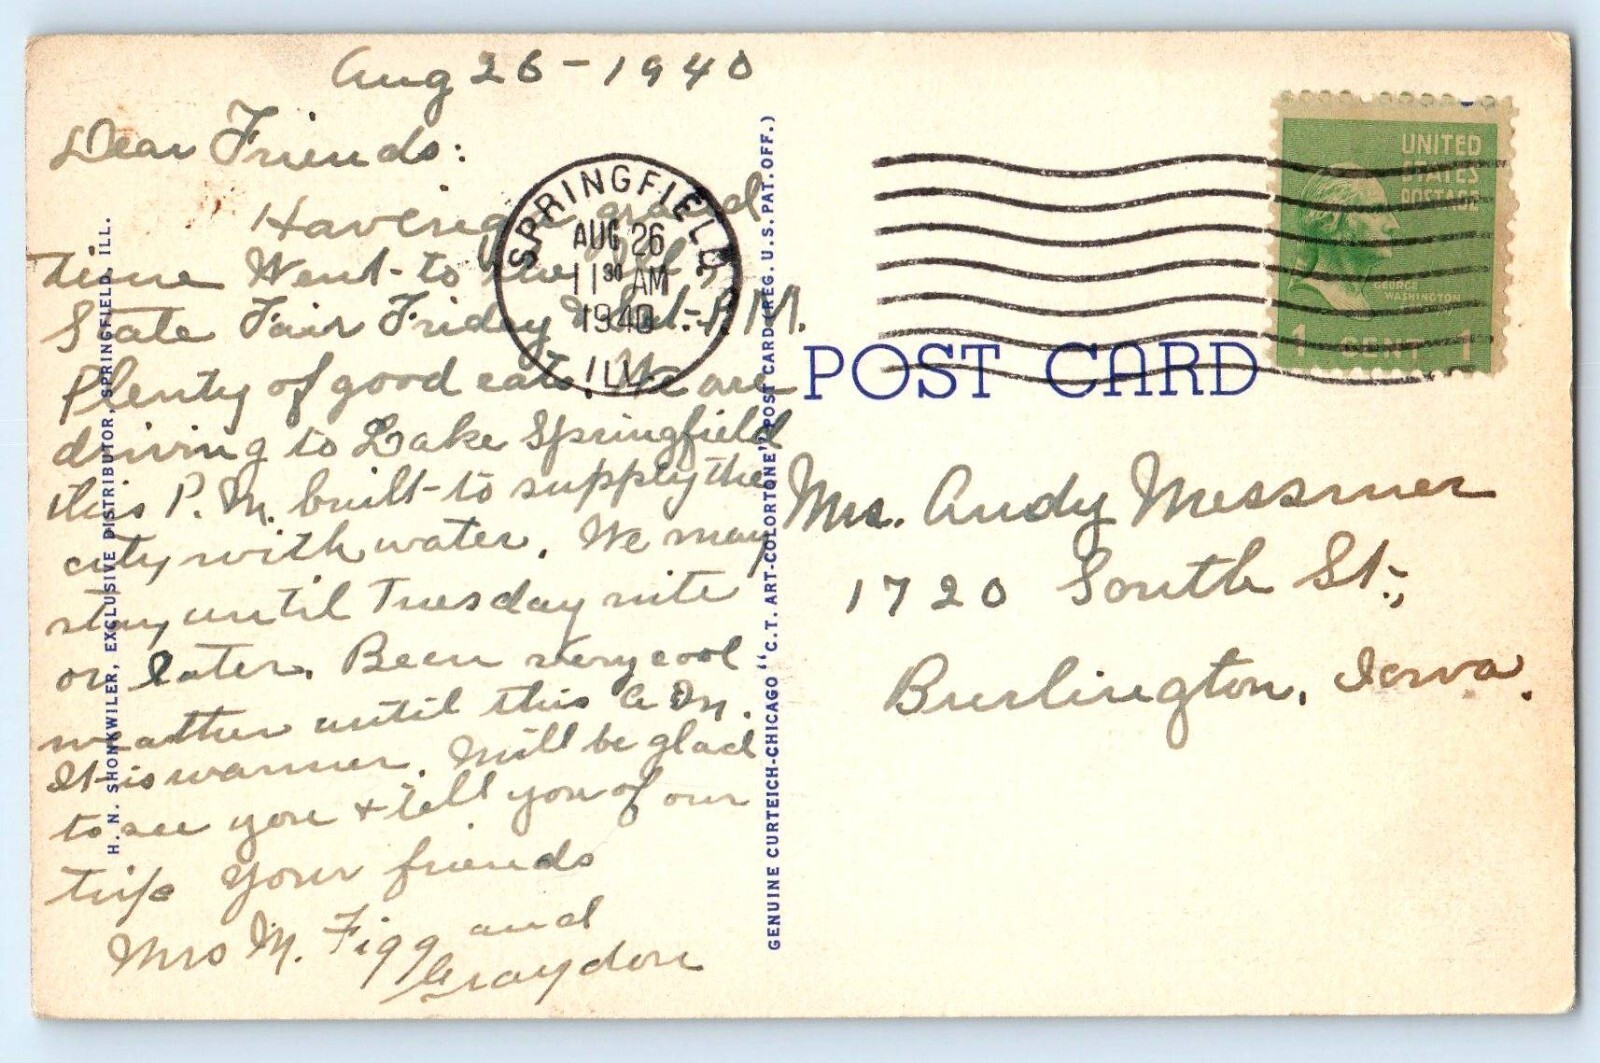 Aug 26 - 1940
Dear Friends:
Having a grand
time Went to the
State Fair Friday P.M.
Plenty of good eats. We are
driving to Lake Springfield
this P.M. built to supply the
city with water. We may
stay until Tuesday nite
or later. Been very cool
weather until this A.M.
It is warmer. Will be glad
to see you & tell you of our
trip Your friends
Mrs M. Figg and
Graydon
H. N. SHONKWILER, EXCLUSIVE DISTRIBUTOR, SPRINGFIELD, ILL.
SPRINGFIELD
AUG 26
11 30 AM
1940
ILL.
GENUINE CURTEICH-CHICAGO "C.T. ART-COLORTONE" POST CARD (REG. U.S. PAT. OFF.)
UNITED
STATES
POSTAGE
GEORGE
WASHINGTON
1 CENT 1
POST CARD
Mrs. Andy Messmer
1720 South St.,
Burlington, Iowa.